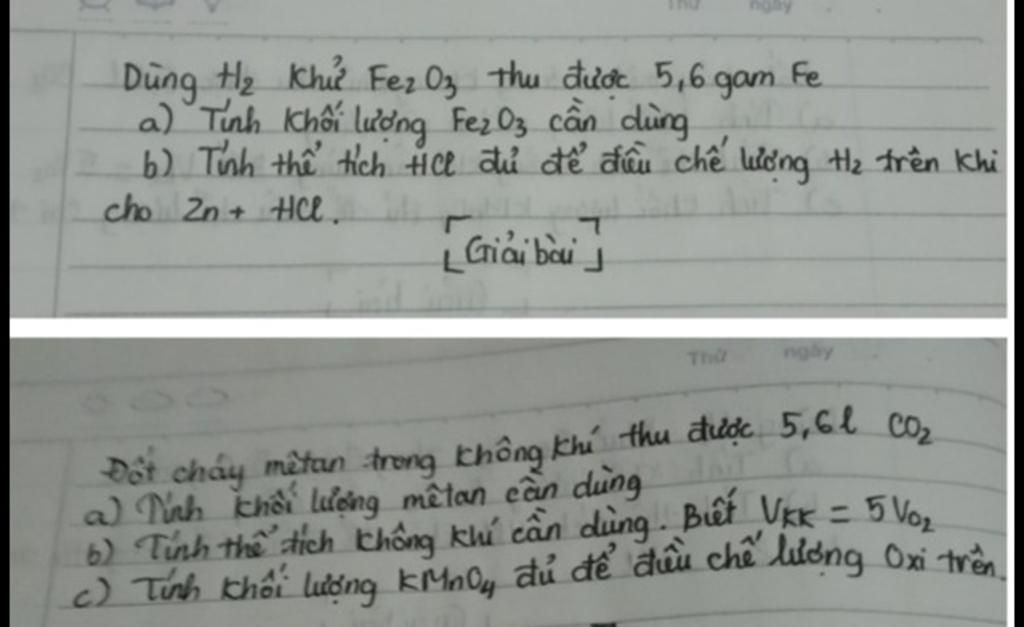 Thứ ngày
Dùng H₂ khử Fe₂O₃ thu được 5,6 gam Fe
a) Tính khối lượng Fe₂O₃ cần dùng
b) Tính thể tích HCl đủ để điều chế lượng H₂ trên khi
cho Zn + HCl.
[Giải bài]
Thứ ngày
Đốt cháy mêtan trong không khí thu được 5,6l CO₂
a) Tính khối lượng mêtan cần dùng
b) Tính thể tích không khí cần dùng. Biết VKK = 5VO₂
c) Tính khối lượng KMnO₄ đủ để điều chế lượng Oxi trên.